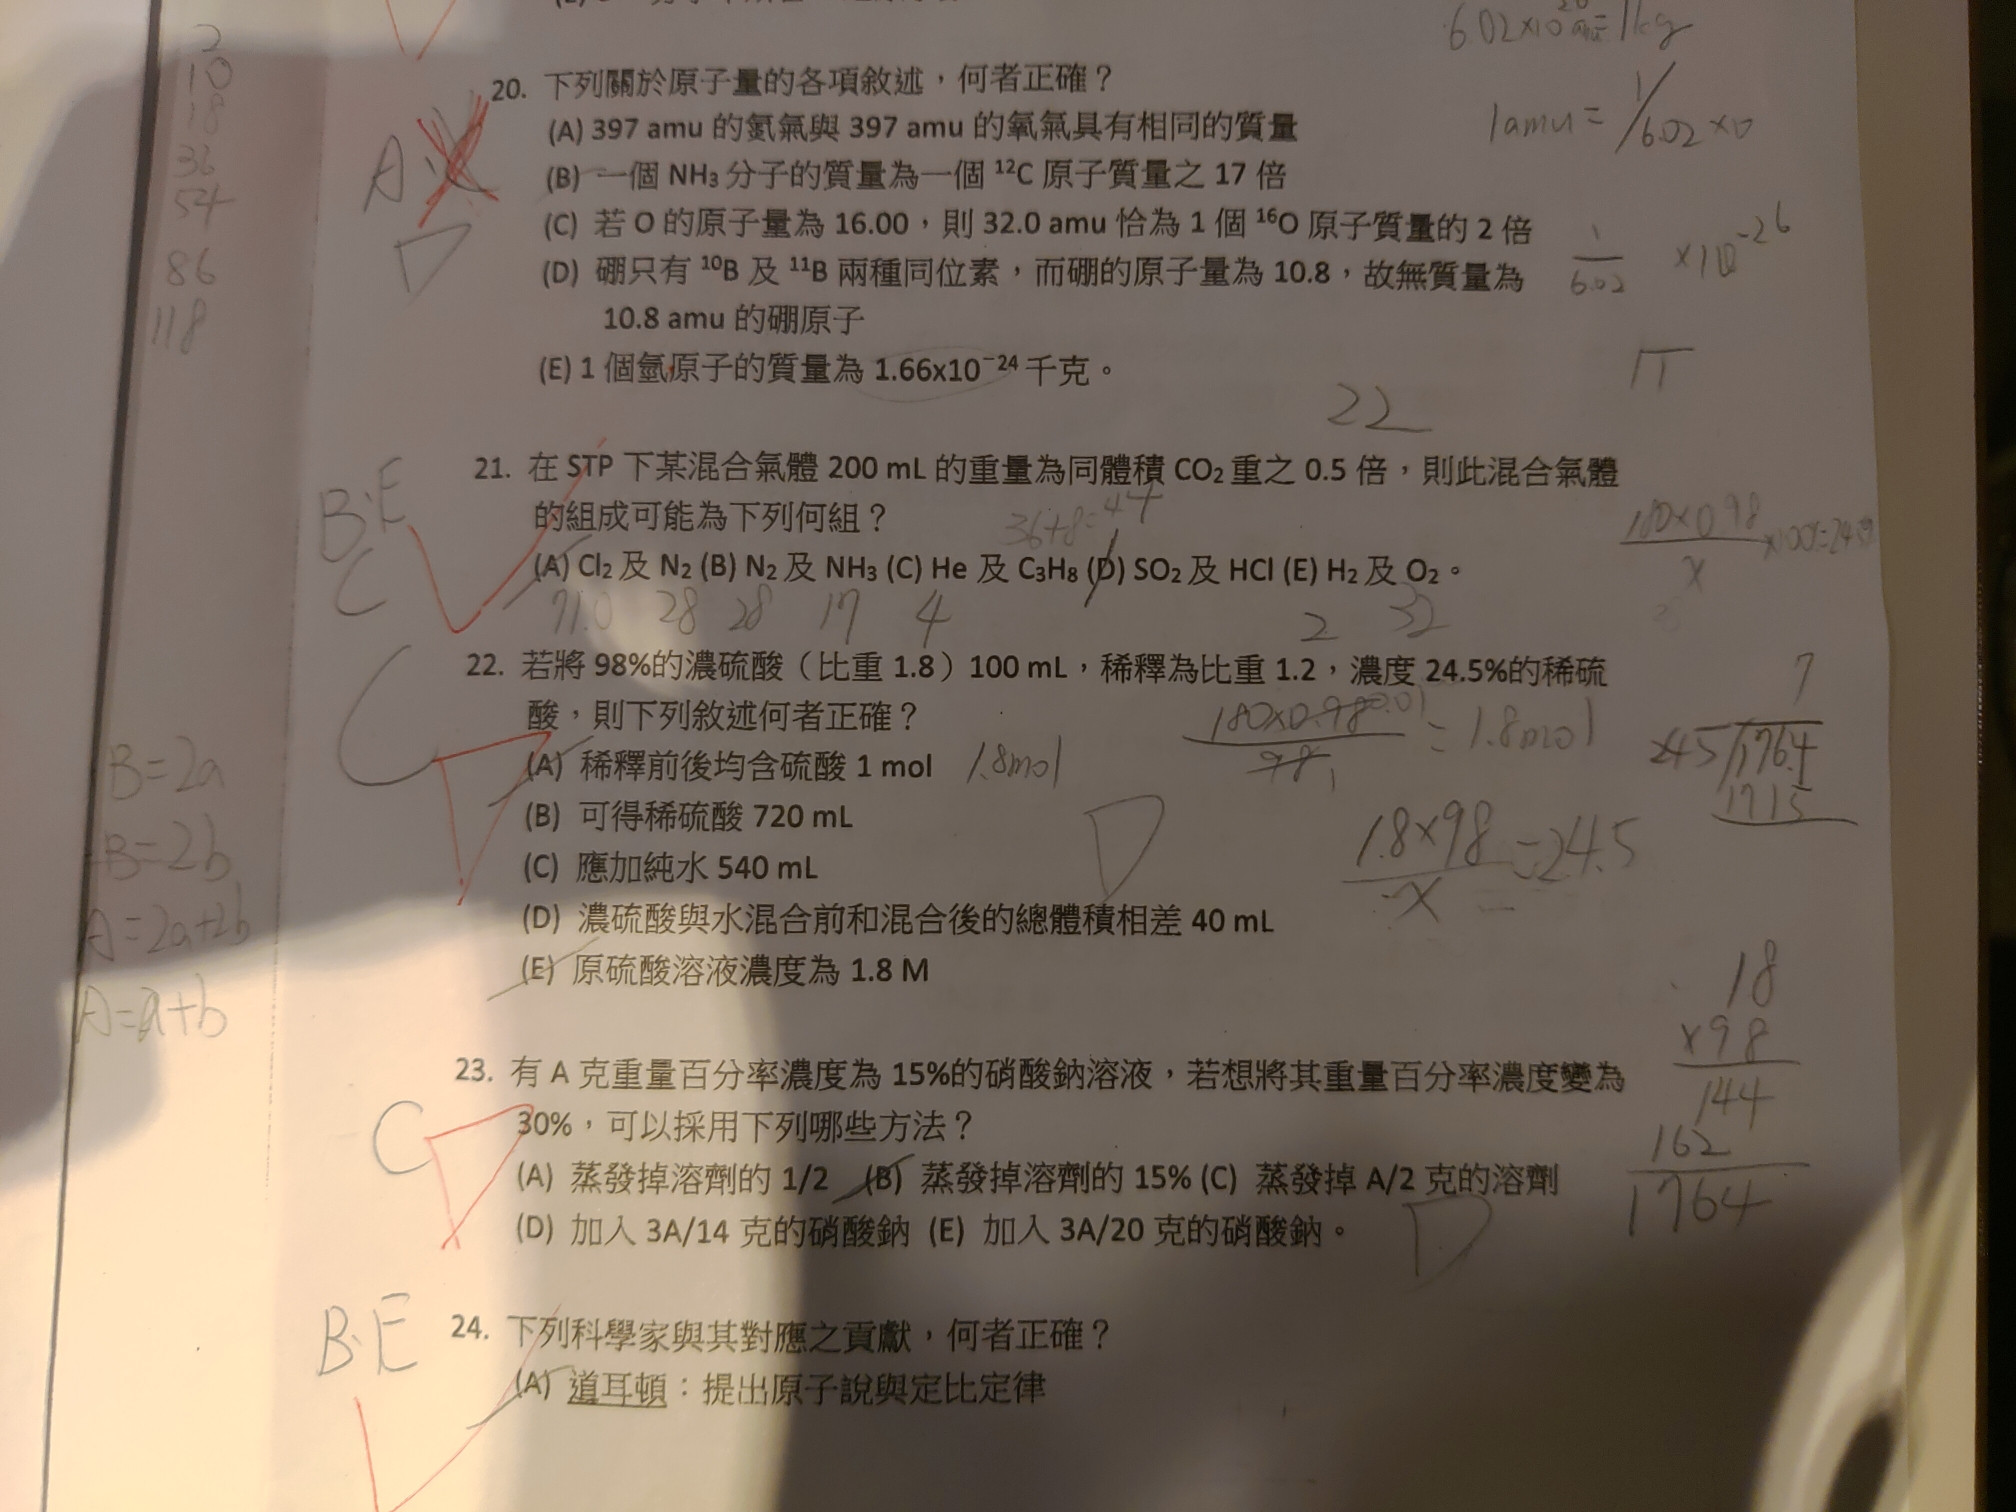 6.02×10²⁶amu=1kg
20. 下列關於原子量的各項敘述，何者正確？
(A) 397 amu 的氮氣與 397 amu 的氧氣具有相同的質量
1amu = 1/6.02×10
A
(B) 一個 NH₃ 分子的質量為一個 ¹²C 原子質量之 17 倍
(C) 若 O 的原子量為 16.00，則 32.0 amu 恰為 1 個 ¹⁶O 原子質量的 2 倍
D
(D) 硼只有 ¹⁰B 及 ¹¹B 兩種同位素，而硼的原子量為 10.8，故無質量為
1/6.02 ×10⁻²⁶
10.8 amu 的硼原子
(E) 1 個氫原子的質量為 1.66x10⁻²⁴ 千克。
17
22
2
10
18
36
54
86
118
21. 在 STP 下某混合氣體 200 mL 的重量為同體積 CO₂ 重之 0.5 倍，則此混合氣體
B.E
C
的組成可能為下列何組？
36+8=44
180×0.98
x
(A) Cl₂ 及 N₂ (B) N₂ 及 NH₃ (C) He 及 C₃H₈ (D) SO₂ 及 HCl (E) H₂ 及 O₂。
71.0 28 28 17 4 2 32
22. 若將 98%的濃硫酸（比重 1.8）100 mL，稀釋為比重 1.2，濃度 24.5%的稀硫
C
酸，則下列敘述何者正確？
180×0.98 0.01
98 1
= 1.8mol
(A) 稀釋前後均含硫酸 1 mol
1.8mol
7
245 1764
1715
(B) 可得稀硫酸 720 mL
D
1.8×98
x
=24.5
(C) 應加純水 540 mL
(D) 濃硫酸與水混合前和混合後的總體積相差 40 mL
(E) 原硫酸溶液濃度為 1.8 M
B=2a
B=2b
A=2a+2b
A=a+b
18
×98
144
162
1764
23. 有 A 克重量百分率濃度為 15%的硝酸鈉溶液，若想將其重量百分率濃度變為
C
30%，可以採用下列哪些方法？
(A) 蒸發掉溶劑的 1/2 (B) 蒸發掉溶劑的 15% (C) 蒸發掉 A/2 克的溶劑
(D) 加入 3A/14 克的硝酸鈉 (E) 加入 3A/20 克的硝酸鈉。
D
B.E
24. 下列科學家與其對應之貢獻，何者正確？
(A) 道耳頓：提出原子說與定比定律